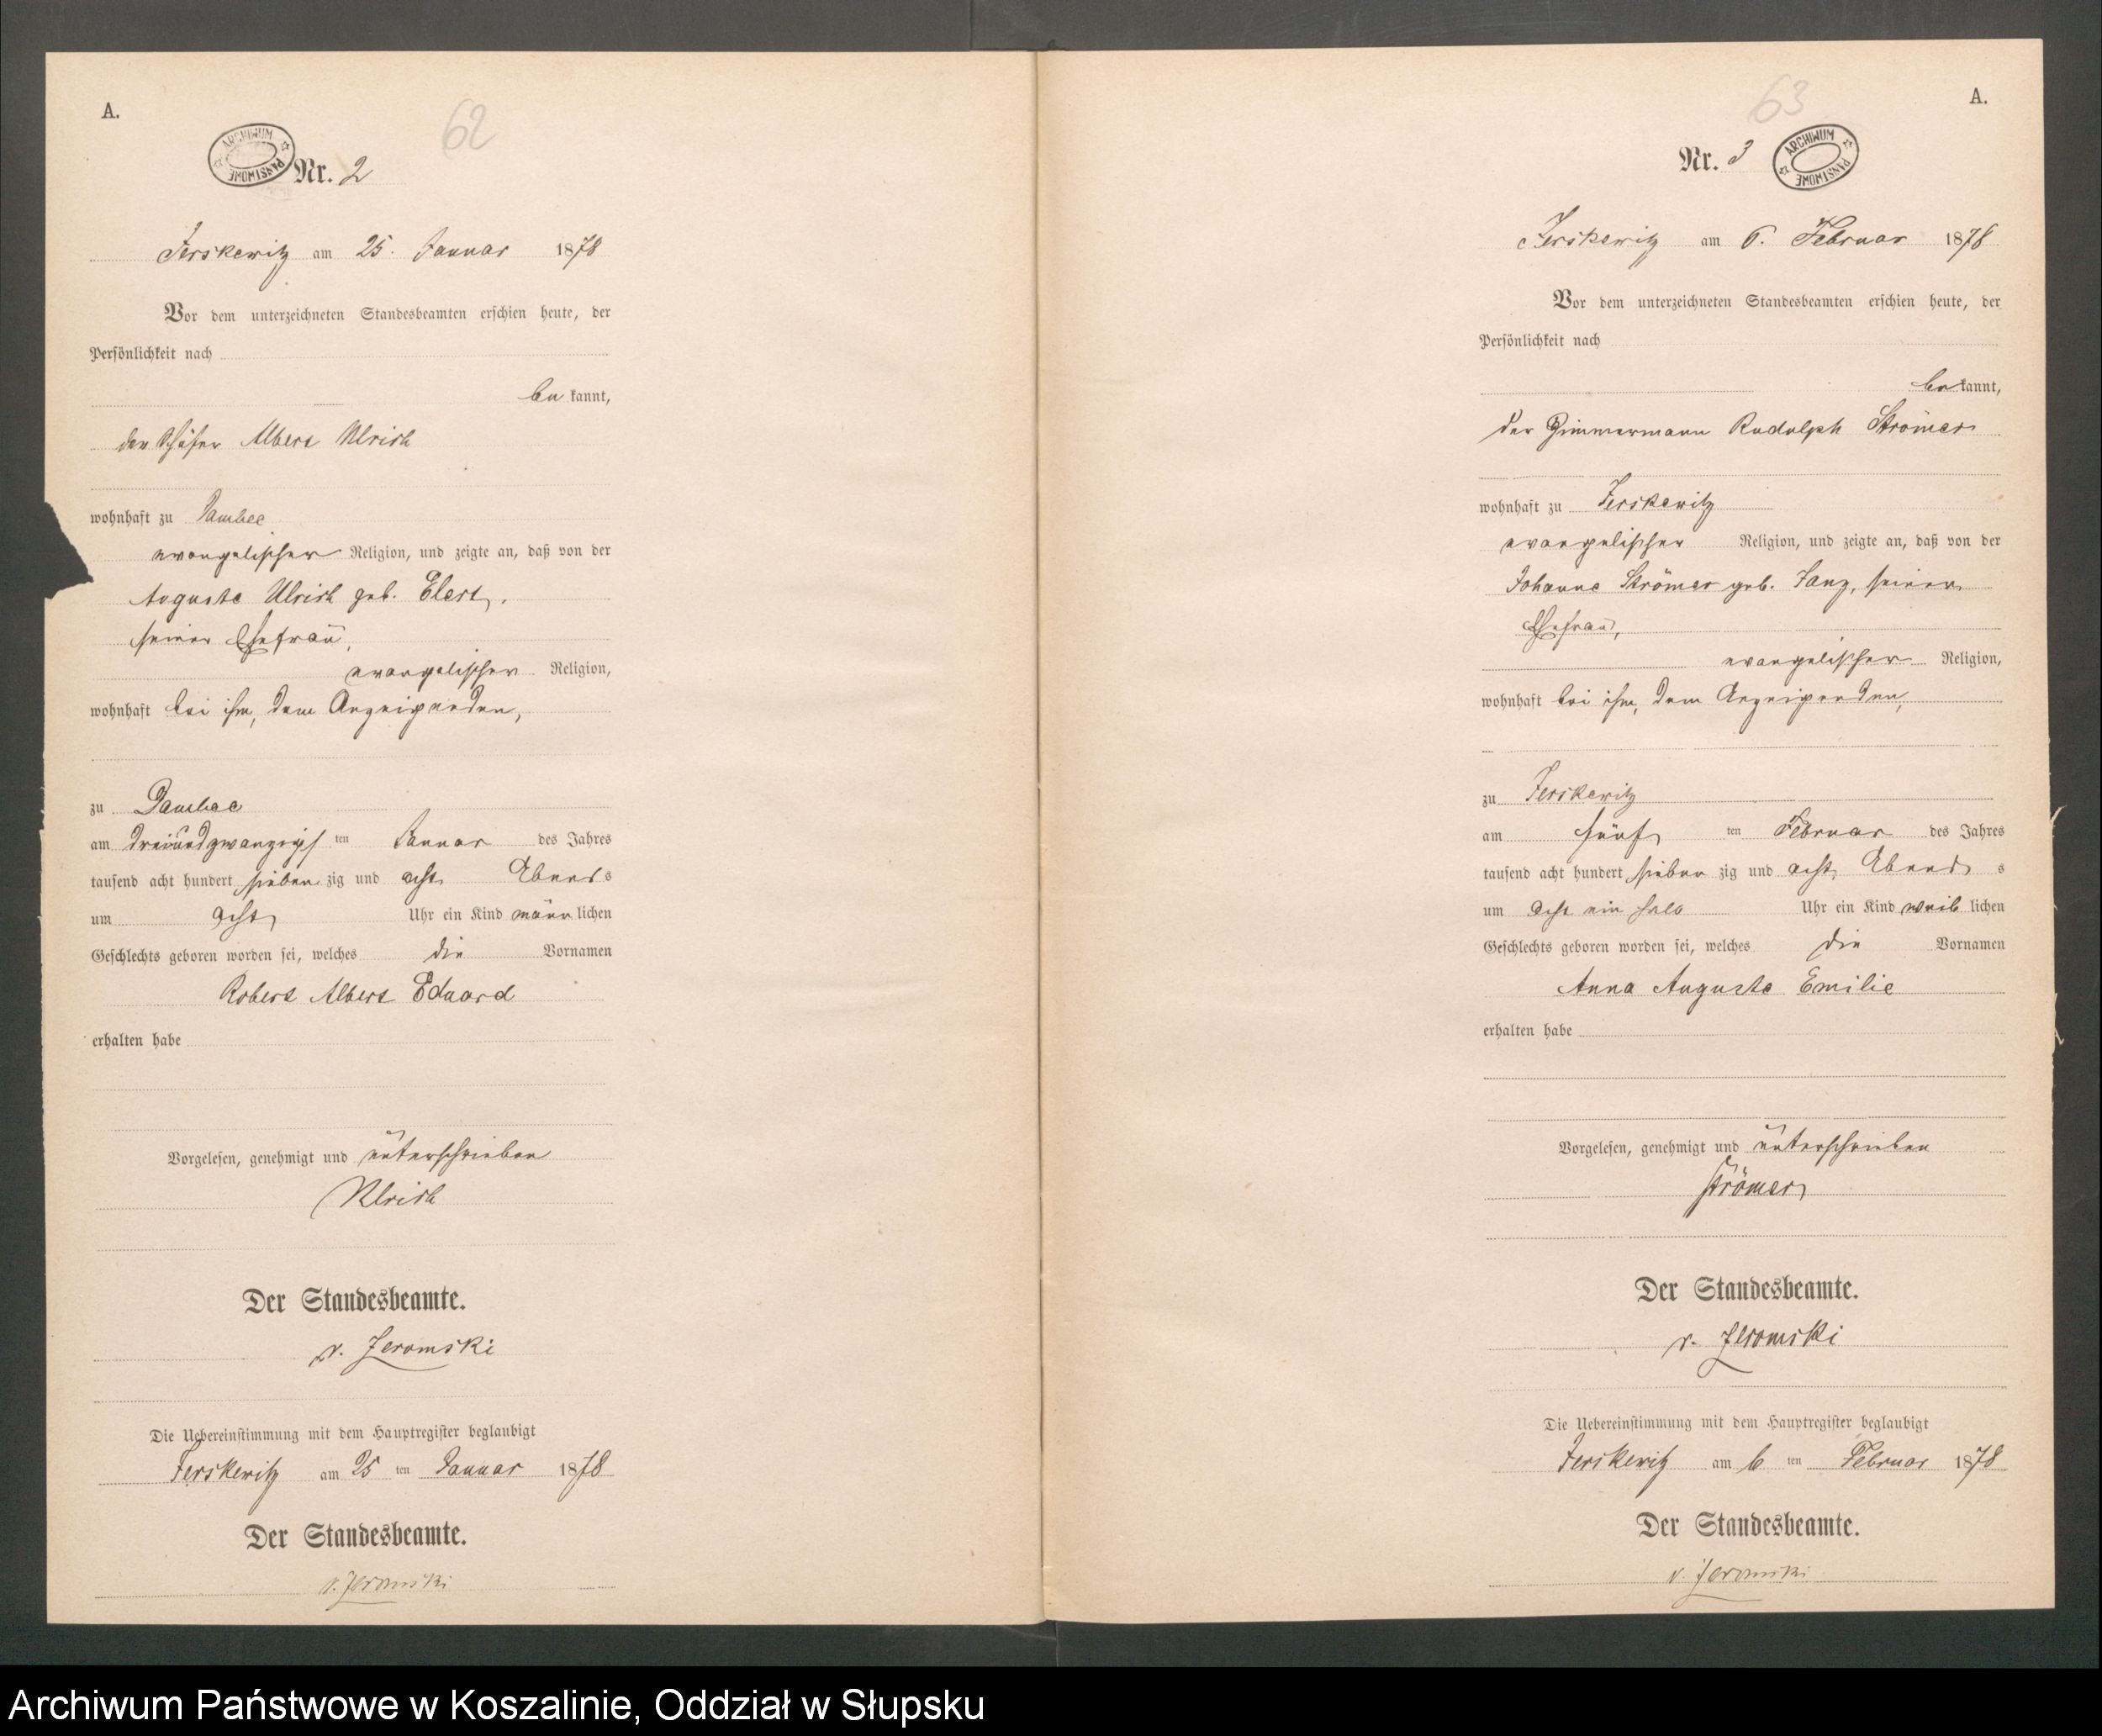 A.
62
ARCHIWUM PAŃSTWOWE
Nr. 2
Jerskewitz am 25. Januar 1878
Vor dem unterzeichneten Standesbeamten erschien heute, der
Persönlichkeit nach
be kannt,
der Schäfer Albert Ulrich
wohnhaft zu Dambee
evangelischer Religion, und zeigte an, daß von der
Auguste Ulrich geb. Elert,
seiner Ehefrau,
evangelischer Religion,
wohnhaft bei ihm, dem Anzeigenden,
zu Dambee
am dreiundzwanzigs ten Januar des Jahres
tausend acht hundert sieben zig und acht Abends
um acht Uhr ein Kind männ lichen
Geschlechts geboren worden sei, welches die Vornamen
Robert Albert Eduard
erhalten habe
Vorgelesen, genehmigt und unterschrieben
Ulrich
Der Standesbeamte.
v. Jeromski
Die Uebereinstimmung mit dem Hauptregister beglaubigt
Jerskewitz am 25 ten Januar 1878
Der Standesbeamte.
v. Jeromski
63
A.
Nr. 3
ARCHIWUM PAŃSTWOWE
Jerskewitz am 6. Februar 1878
Vor dem unterzeichneten Standesbeamten erschien heute, der
Persönlichkeit nach
be kannt,
der Zimmermann Rudolph Strömer
wohnhaft zu Jerskewitz
evangelischer Religion, und zeigte an, daß von der
Johanne Strömer geb. Janz, seiner
Ehefrau,
evangelischer Religion,
wohnhaft bei ihm, dem Anzeigenden,
zu Jerskewitz
am fünf ten Februar des Jahres
tausend acht hundert sieben zig und acht, Abend s
um acht ein halb Uhr ein Kind weib lichen
Geschlechts geboren worden sei, welches die Vornamen
Anna Auguste Emilie
erhalten habe
Vorgelesen, genehmigt und unterschrieben
Strömer
Der Standesbeamte.
v. Jeromski
Die Uebereinstimmung mit dem Hauptregister beglaubigt
Jerskewitz am 6 ten Februar 1878
Der Standesbeamte.
v. Jeromski
Archiwum Państwowe w Koszalinie, Oddział w Słupsku